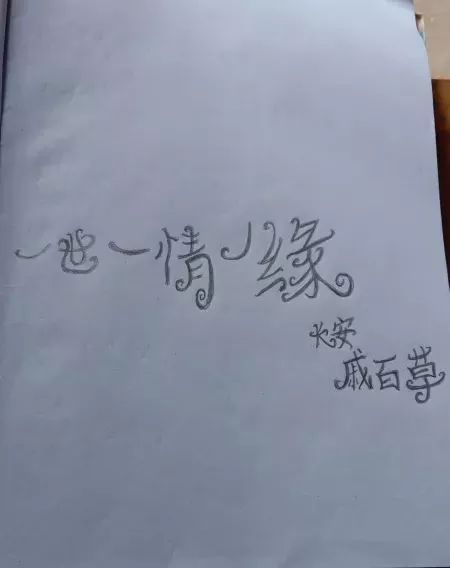 一世一情一缘
长安
戚百草